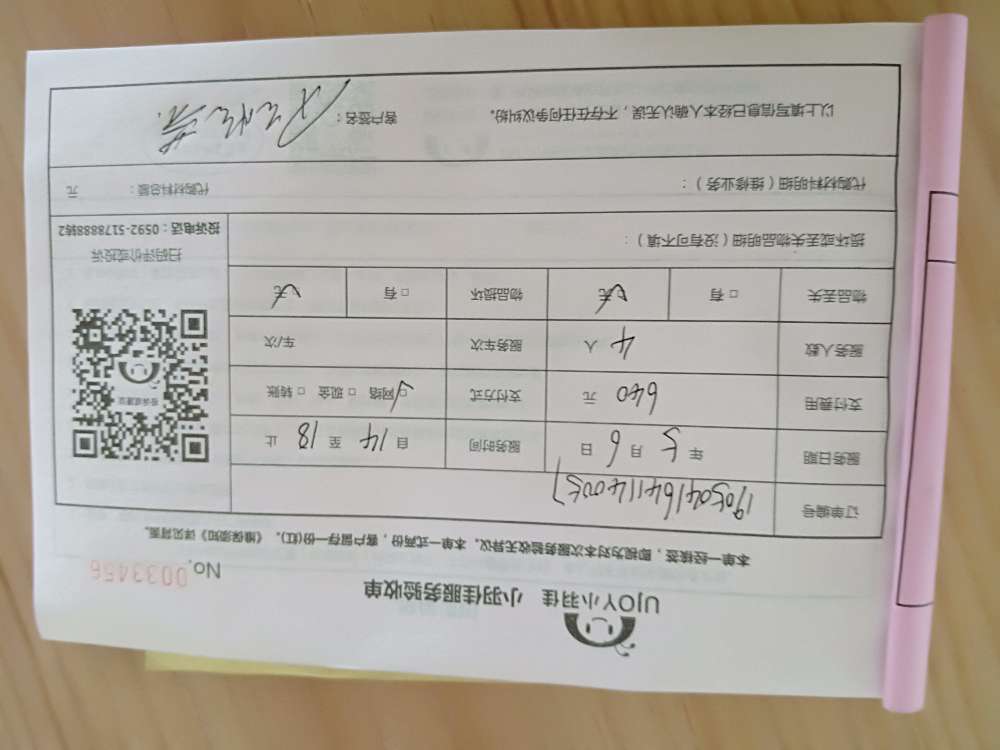 UJOY小羽佳 小羽佳服务验收单
No. 0033456
本单一经核签，即视为对本次服务验收无异议。本单一式两份，客户留存一份(红)。《维保须知》详见背面。
订单编号 1905041641140057
服务日期 年 5 月 6 日 服务时间 自 14 至 18 止
支付费用 640 元 支付方式 网络 □ 现金 □ 转账
服务人数 4 人 服务车次 车/次
物品丢失 □ 有 无 物品损坏 □ 有 无
损坏或丢失物品明细（没有可不填）：
投诉或建议
扫码评价或投诉
投诉电话：0592-5178888转2
代购材料明细（维修业务）： 代购材料总额： 元
以上填写信息已经本人确认无误，不存在任何争议纠纷。 客户签名：